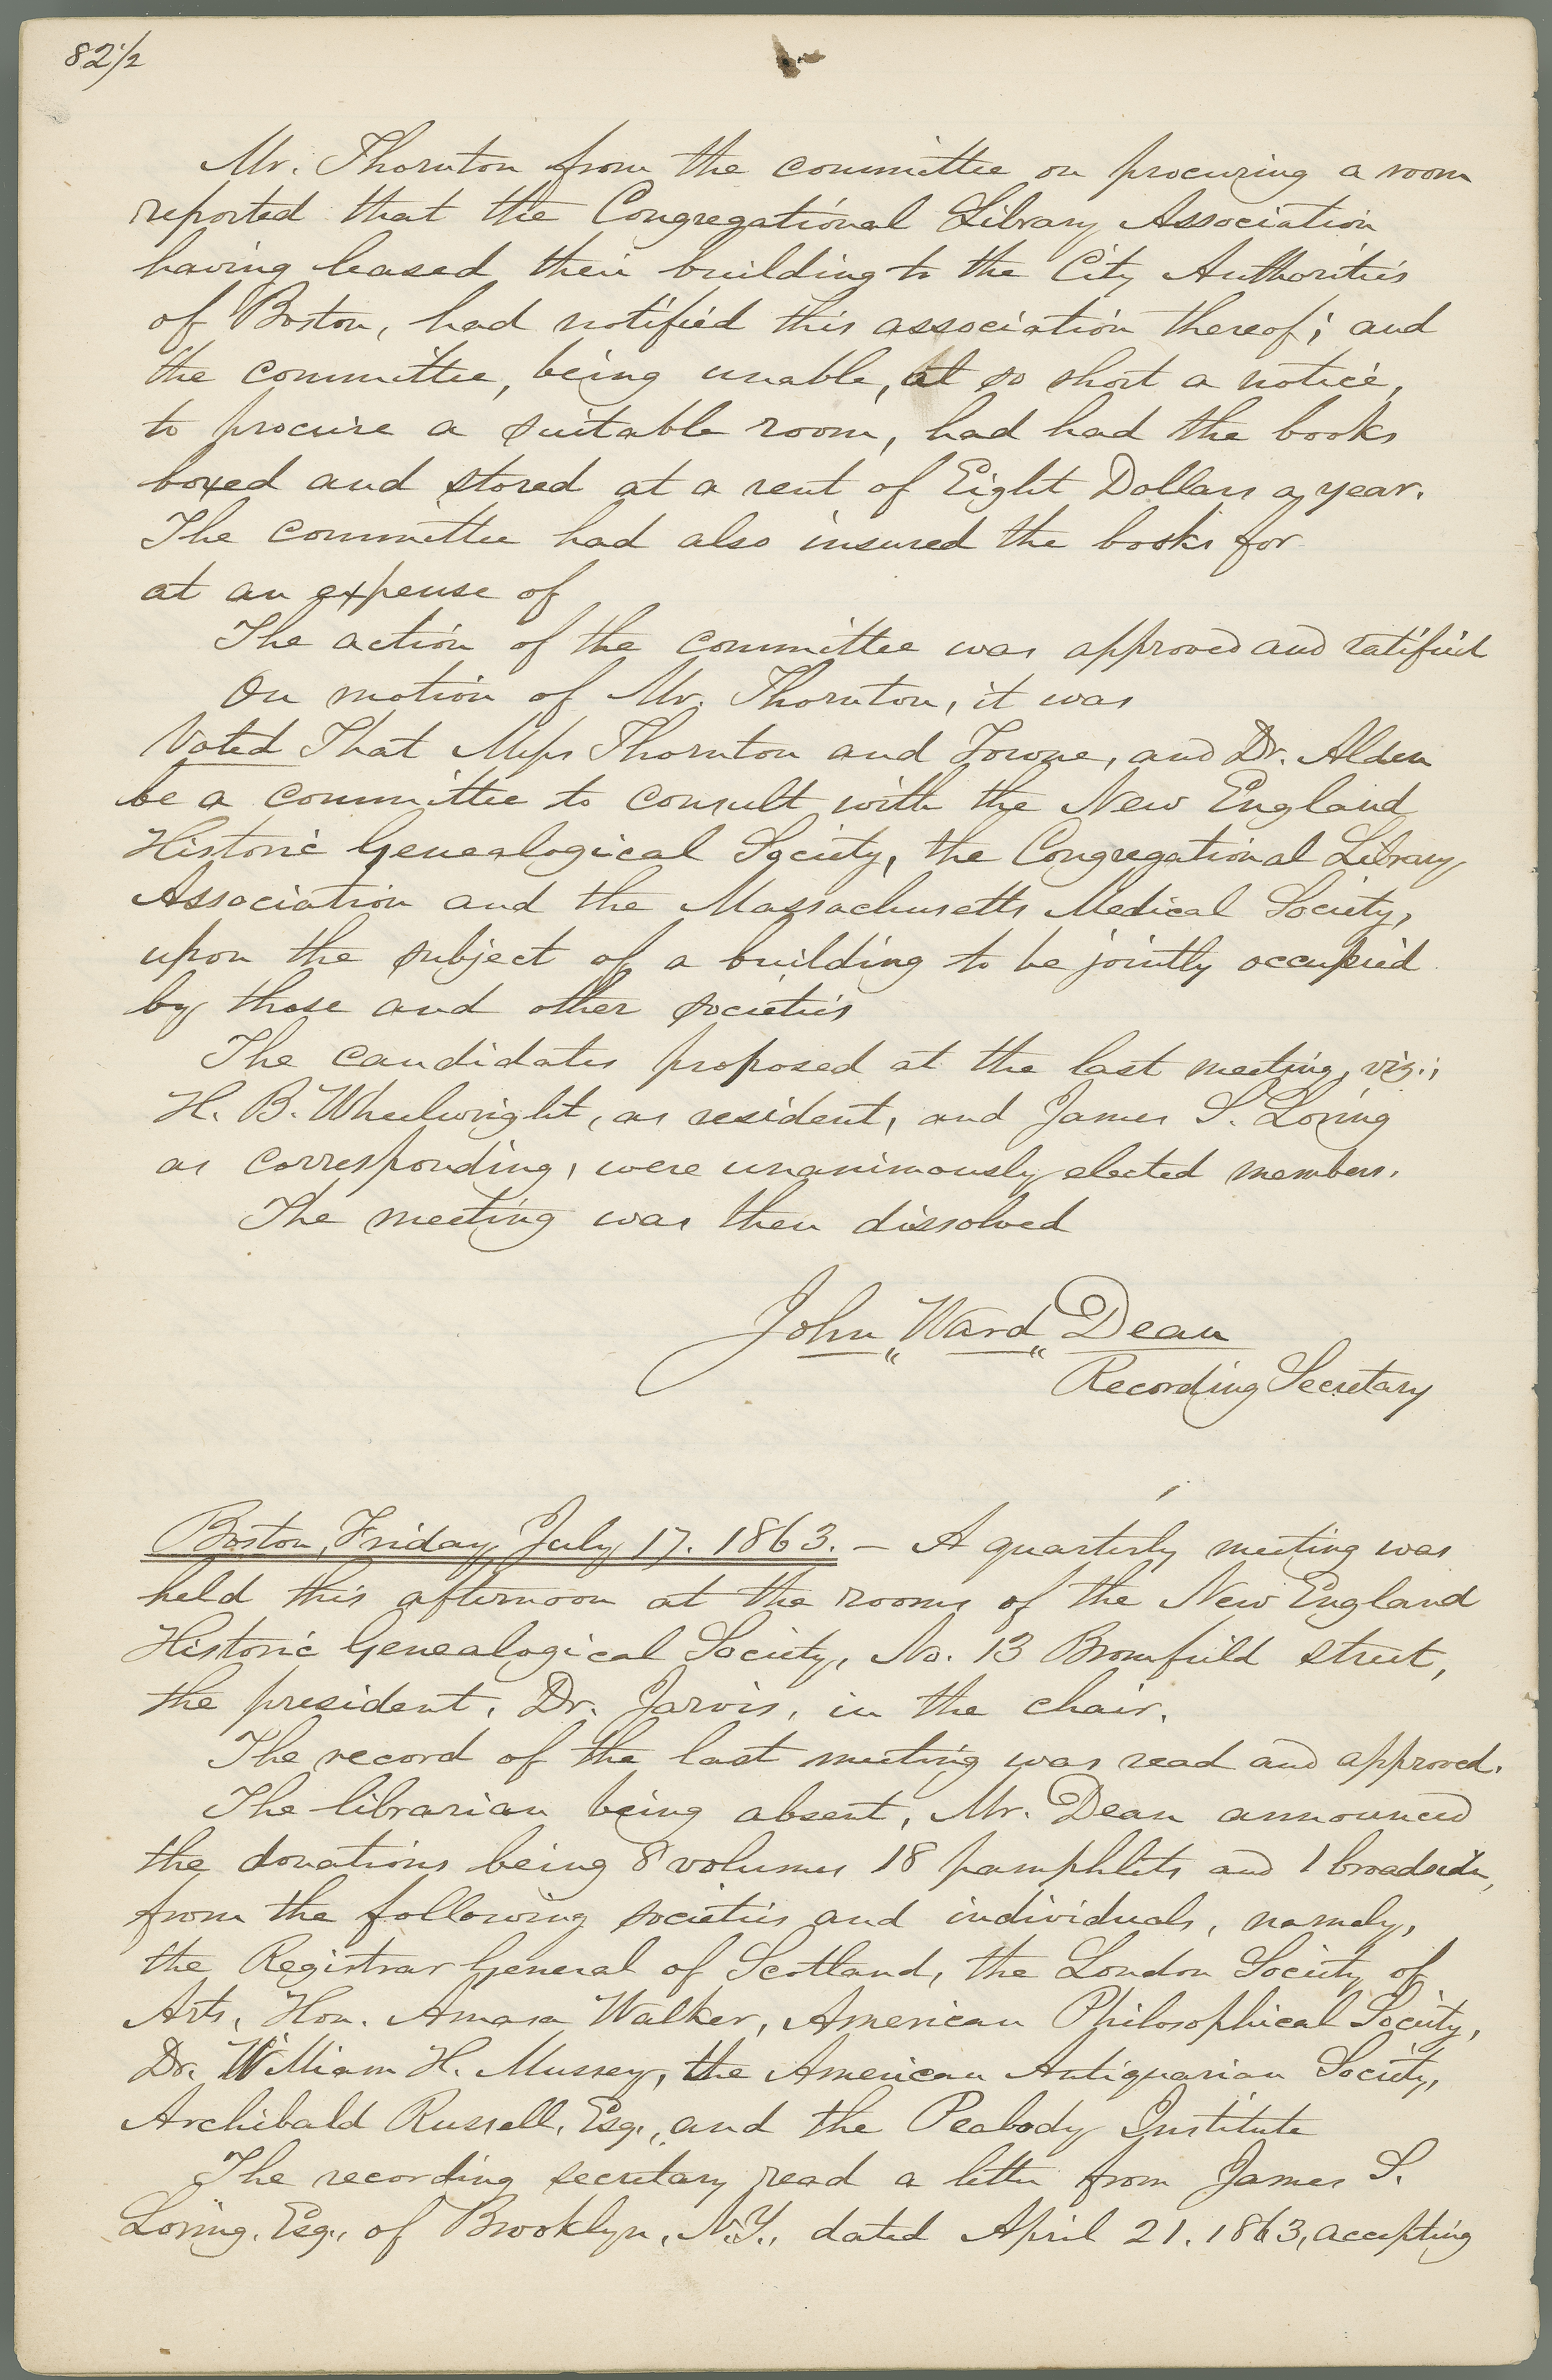 82½
Mr. Thornton from the committee on procuring a room
reported that the Congregational Library Association
having leased their building to the City Authorities
of Boston, had notified this association thereof; and
the committee, being unable, at so short a notice,
to procure a suitable room, had had the books
boxed and stored at a rent of Eight Dollars a year.
The committee had also insured the books for
at an expense of
The action of the committee was approved and ratified
On motion of Mr. Thornton, it was
Voted That Messrs Thornton and Towne, and Dr. Alden
be a committee to consult with the New England
Historic Genealogical Society, the Congregational Library
Association and the Massachusetts Medical Society,
upon the subject of a building to be jointly occupied
by those and other societies
The candidates proposed at the last meeting, viz.;
H. B. Wheelwright, as resident, and James S. Loring
as corresponding, were unanimously elected members.
The meeting was then dissolved
John „Ward„ Dean
Recording Secretary
Boston, Friday, July 17. 1863. – A quarterly meeting was
held this afternoon at the rooms of the New England
Historic Genealogical Society, No. 13 Bromfield street,
the president, Dr. Jarvis, in the chair.
The record of the last meeting was read and approved.
The librarian being absent, Mr. Dean announced
the donations being 8 volumes 18 pamphlets and 1 broadside,
from the following societies and individuals, namely,
the Registrar General of Scotland, the London Society of
Arts, Hon. Amasa Walker, American Philosophical Society,
Dr. William H. Mussey, the American Antiquarian Society,
Archibald Russell, Esq., and the Peabody Institute
The recording secretary read a letter from James S.
Loring, Esq., of Brooklyn, N.Y., dated April 21. 1863, accepting